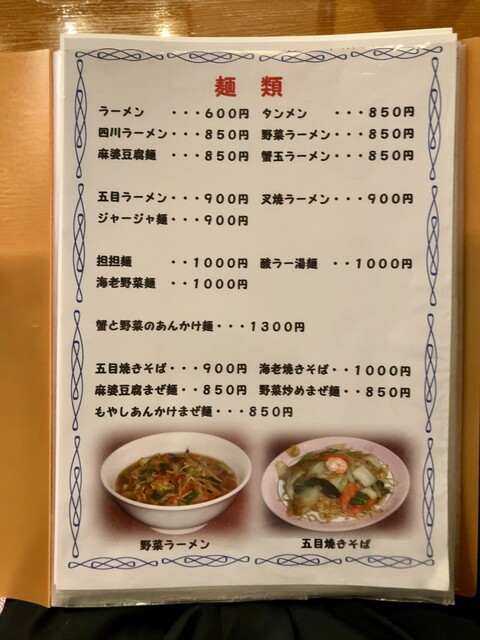 麺 類
ラーメン ・・・600円 タンメン ・・・850円
四川ラーメン・・・850円 野菜ラーメン・・・850円
麻婆豆腐麺 ・・・850円 蟹玉ラーメン・・・850円
五目ラーメン・・・900円 叉焼ラーメン・・・900円
ジャージャ麺・・・900円
担担麺 ・・1000円 酸ラー湯麺 ・・1000円
海老野菜麺 ・・1000円
蟹と野菜のあんかけ麺・・・1300円
五目焼きそば・・・900円 海老焼きそば・・1000円
麻婆豆腐まぜ麺・・850円 野菜炒めまぜ麺・・850円
もやしあんかけまぜ麺・・・850円
野菜ラーメン 五目焼きそば